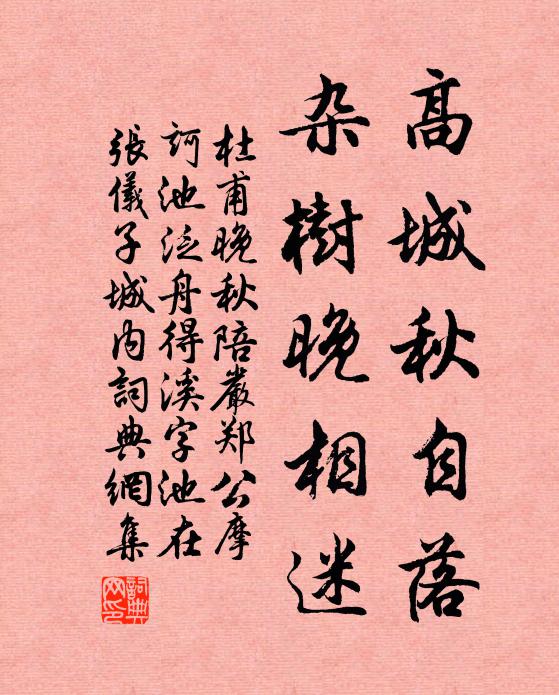 高城秋自落
杂樹晚相迷
杜甫晚秋陪嚴郑公摩
訶池泛舟得溪字池在
張儀子城内詞典網集
詞典
网印